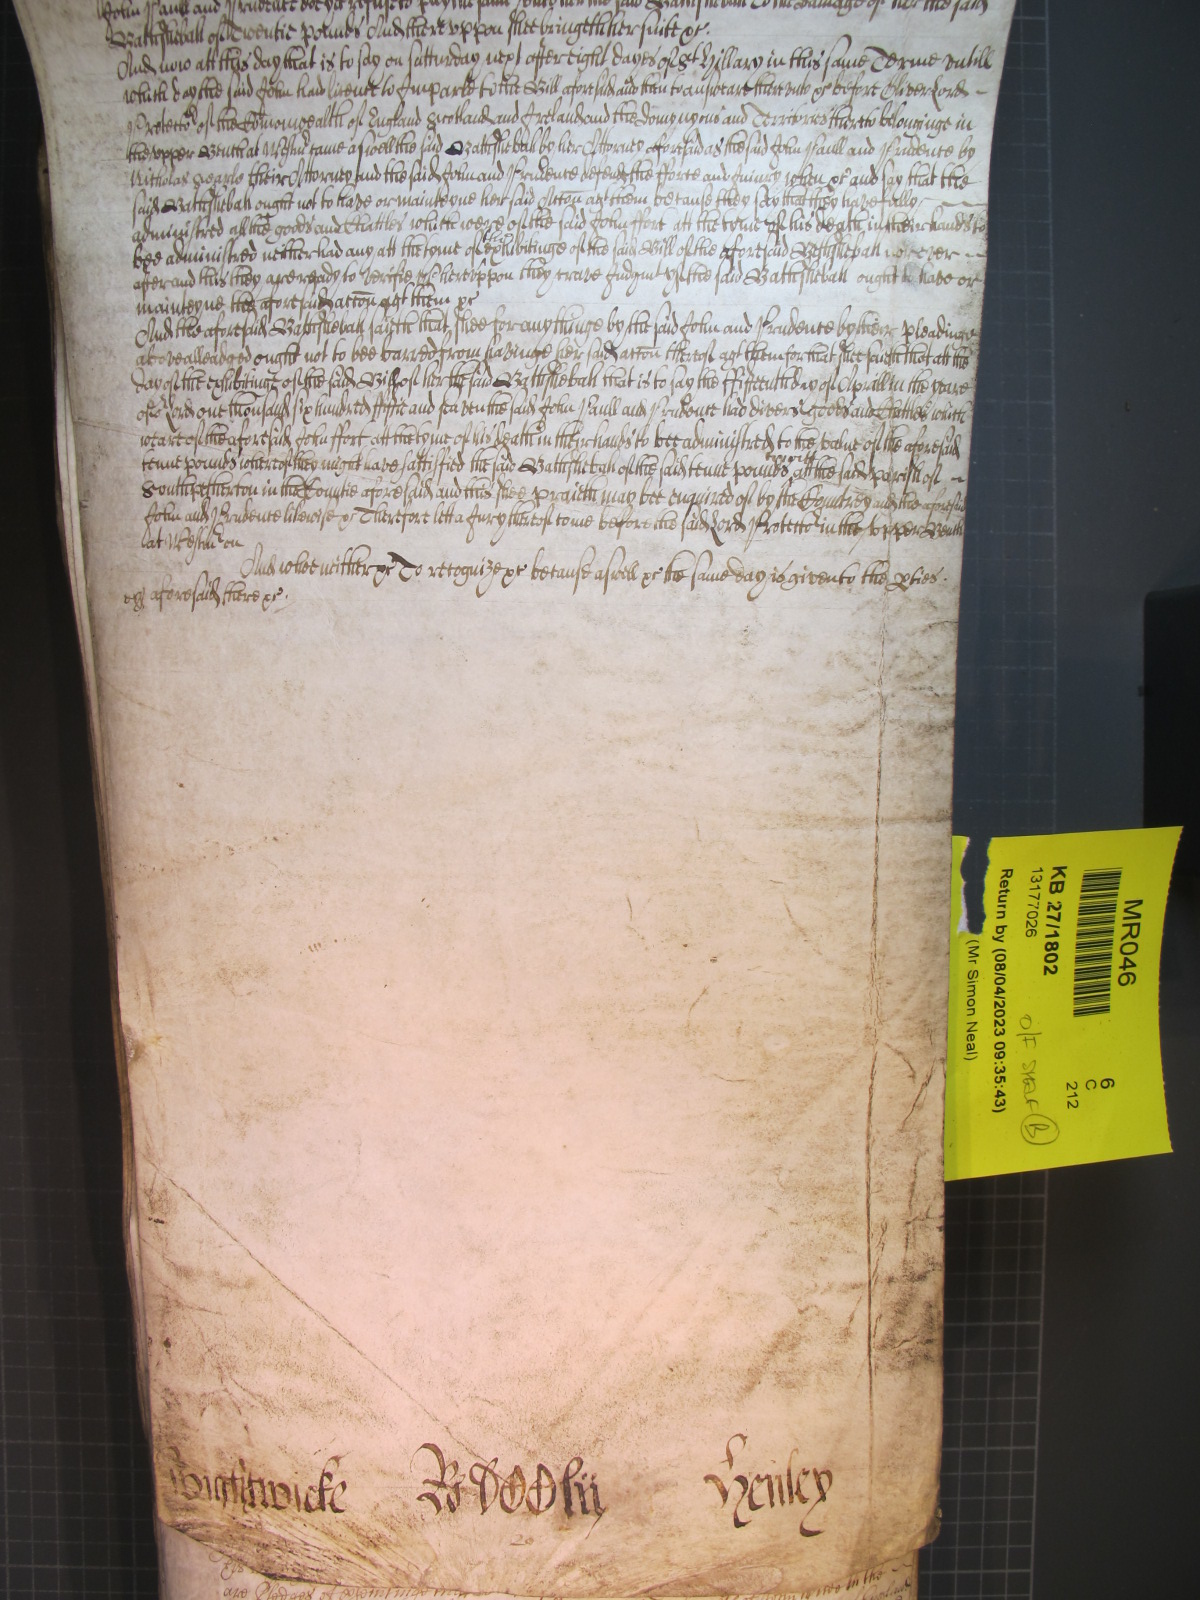 John Paull and Prudence doe yet refuse to pay the same unto her the said Bathsheball To the damage of her the said
Bathsheball of Twentie pounds And thereuppon shee bringeth her suite &c.
And now att this day that is to say on satturday next after eight dayes of St Hillary in this same Terme untill
which day the said John had licence to Imparle to the Bill aforesaid and then to answeare thereunto &c before Oliver Lord
Protector of the Comonwealth of England Scotland and Ireland and the domynions and Territories thereto belonginge in
the upper Bench at Westmr came aswell the said Bathsheball by her Attorney aforesaid as the said John Paull and Prudence by
Nicholas Searle their Attorney and the said John and Prudence defend the fforce and iniury when &c and say that the
said Bathsheball ought not to have or mainteyne her said Accon agt them because they say that they have fully
administred all the goods and Chattles which were of the said John ffort att the tyme of his death in their hands to
bee administred neither had any att the tyme of the exhibitinge of the said Bill of the aforesaid Bathsheball or ever
after and this they are ready to verifie &c hereuppon they crave Judgmt yf the said Bathsheball ought to have or
mainteyne the aforesaid accon agt them &c
And the aforesaid Bathsheball saieth that shee for any thinge by the said John and Prudence by their pleadinge
above alleadged ought not to bee barred from haveinge her said accon thereof agt them for that shee saieth that att the
day of the exhibitinge of the said Bill of her the said Bathsheball that is to say the ffifteenth day of Aprill in the yeare
of or Lord one thousand six hundred ffiftie and seaven the said John Paull and Prudence had divers goods and Chattles which
weare of the aforesaid John ffort att the tyme of his death in their hands to bee administred to the value of the aforesaid
tenne pounds whereof they might have sattisfied the said Bathsheball of the said tenne pounds to witt att the said parish of
Southpetherton in the Countie aforesaid and this shee praieth may bee enquired of by the Countrey and the aforesaid
John and Prudence likewise &c Therefore lett a Jury thereof come before the said Lord Protector in the upper Bench
att Westmr on
And whoe neither &c To recognize &c because aswell &c the same day is given to the pties
aforesaid there &c.
MR046
KB 27/1802
13177026
6
C
212
O/F SHELF B
Return by (08/04/2023 09:35:43)
(Mr Simon Neal)
Wightwicke
Henley
20
are Pledges of
in the